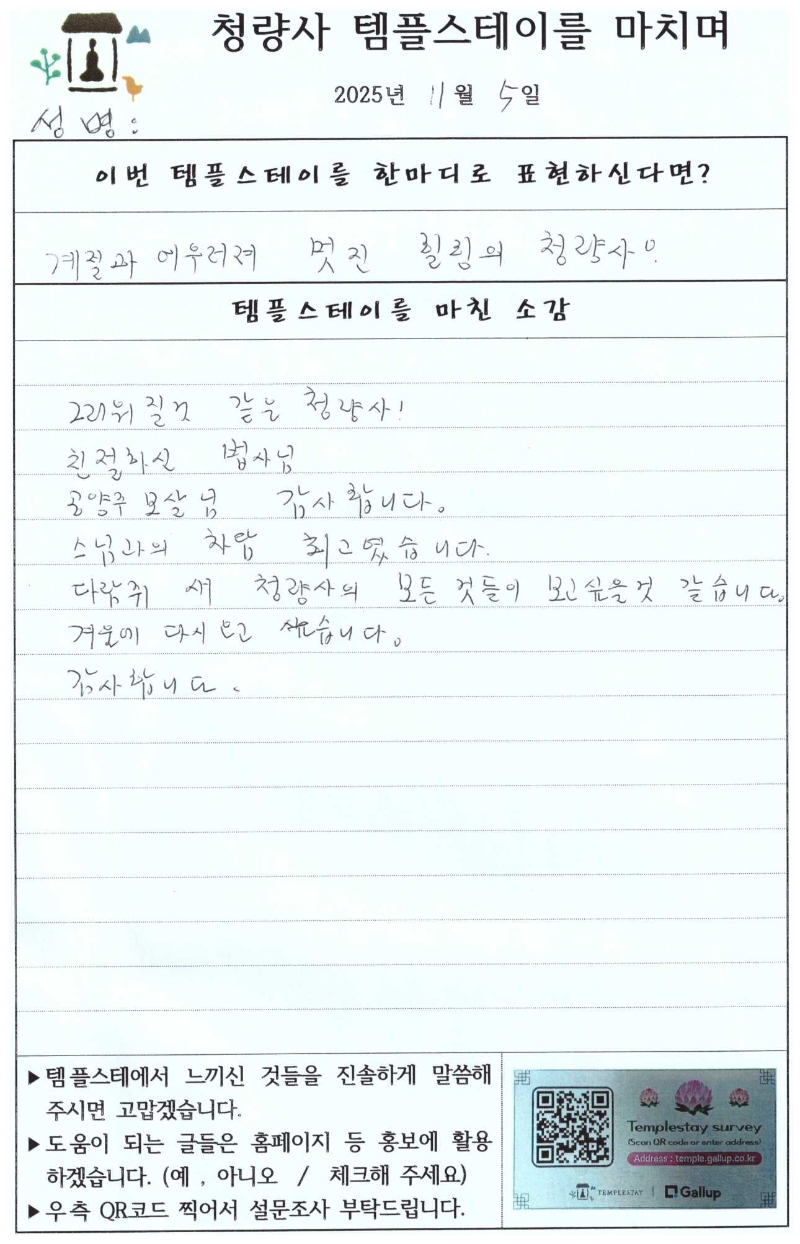 청량사 템플스테이를 마치며
2025년 11월 5일
성명:
이번 템플스테이를 한마디로 표현하신다면?
계절과 어우러져 멋진 힐링의 청량사!
템플스테이를 마친 소감
그리워질것 같은 청량사!
친절하신 법사님
공양주 보살님 감사합니다.
스님과의 차담 최고였습니다.
다람쥐 새 청량사의 모든 것들이 보고싶을것 같습니다.
겨울에 다시 오고 싶습니다.
감사합니다.
▶템플스테에서 느끼신 것들을 진솔하게 말씀해
주시면 고맙겠습니다.
▶도움이 되는 글들은 홈페이지 등 홍보에 활용
하겠습니다. (예 , 아니오 / 체크해 주세요)
▶우측 QR코드 찍어서 설문조사 부탁드립니다.
Templestay survey
(Scan QR code or enter address)
Address : temple.gallup.co.kr
TEMPLESTAY | Gallup